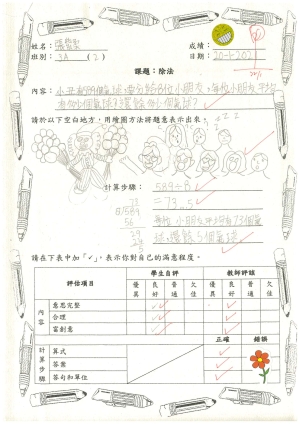 姓名：
成績：
班別：3A (2)
日期：20-1-202
課題：除法
內容：小丑有589個氣球，要分給8位小朋友，每位小朋友平均
有多少個氣球？還餘多少個氣球？
請於以下空白地方，用繪圖方法將題意表示出來。
計算步驟：
589÷8
73
=73...5
8/589
56
29
24
5
每位小朋友平均有73個氣
球，還餘5個氣球。
請在下表中加「✓」，表示你對自己的滿意程度。
評估項目
學生自評
教師評鑑
優異
良好
普通
欠佳
優異
良好
普通
欠佳
內容
意思完整
合理
富創意
正確
錯誤
計算步驟
算式
答案
答句和單位